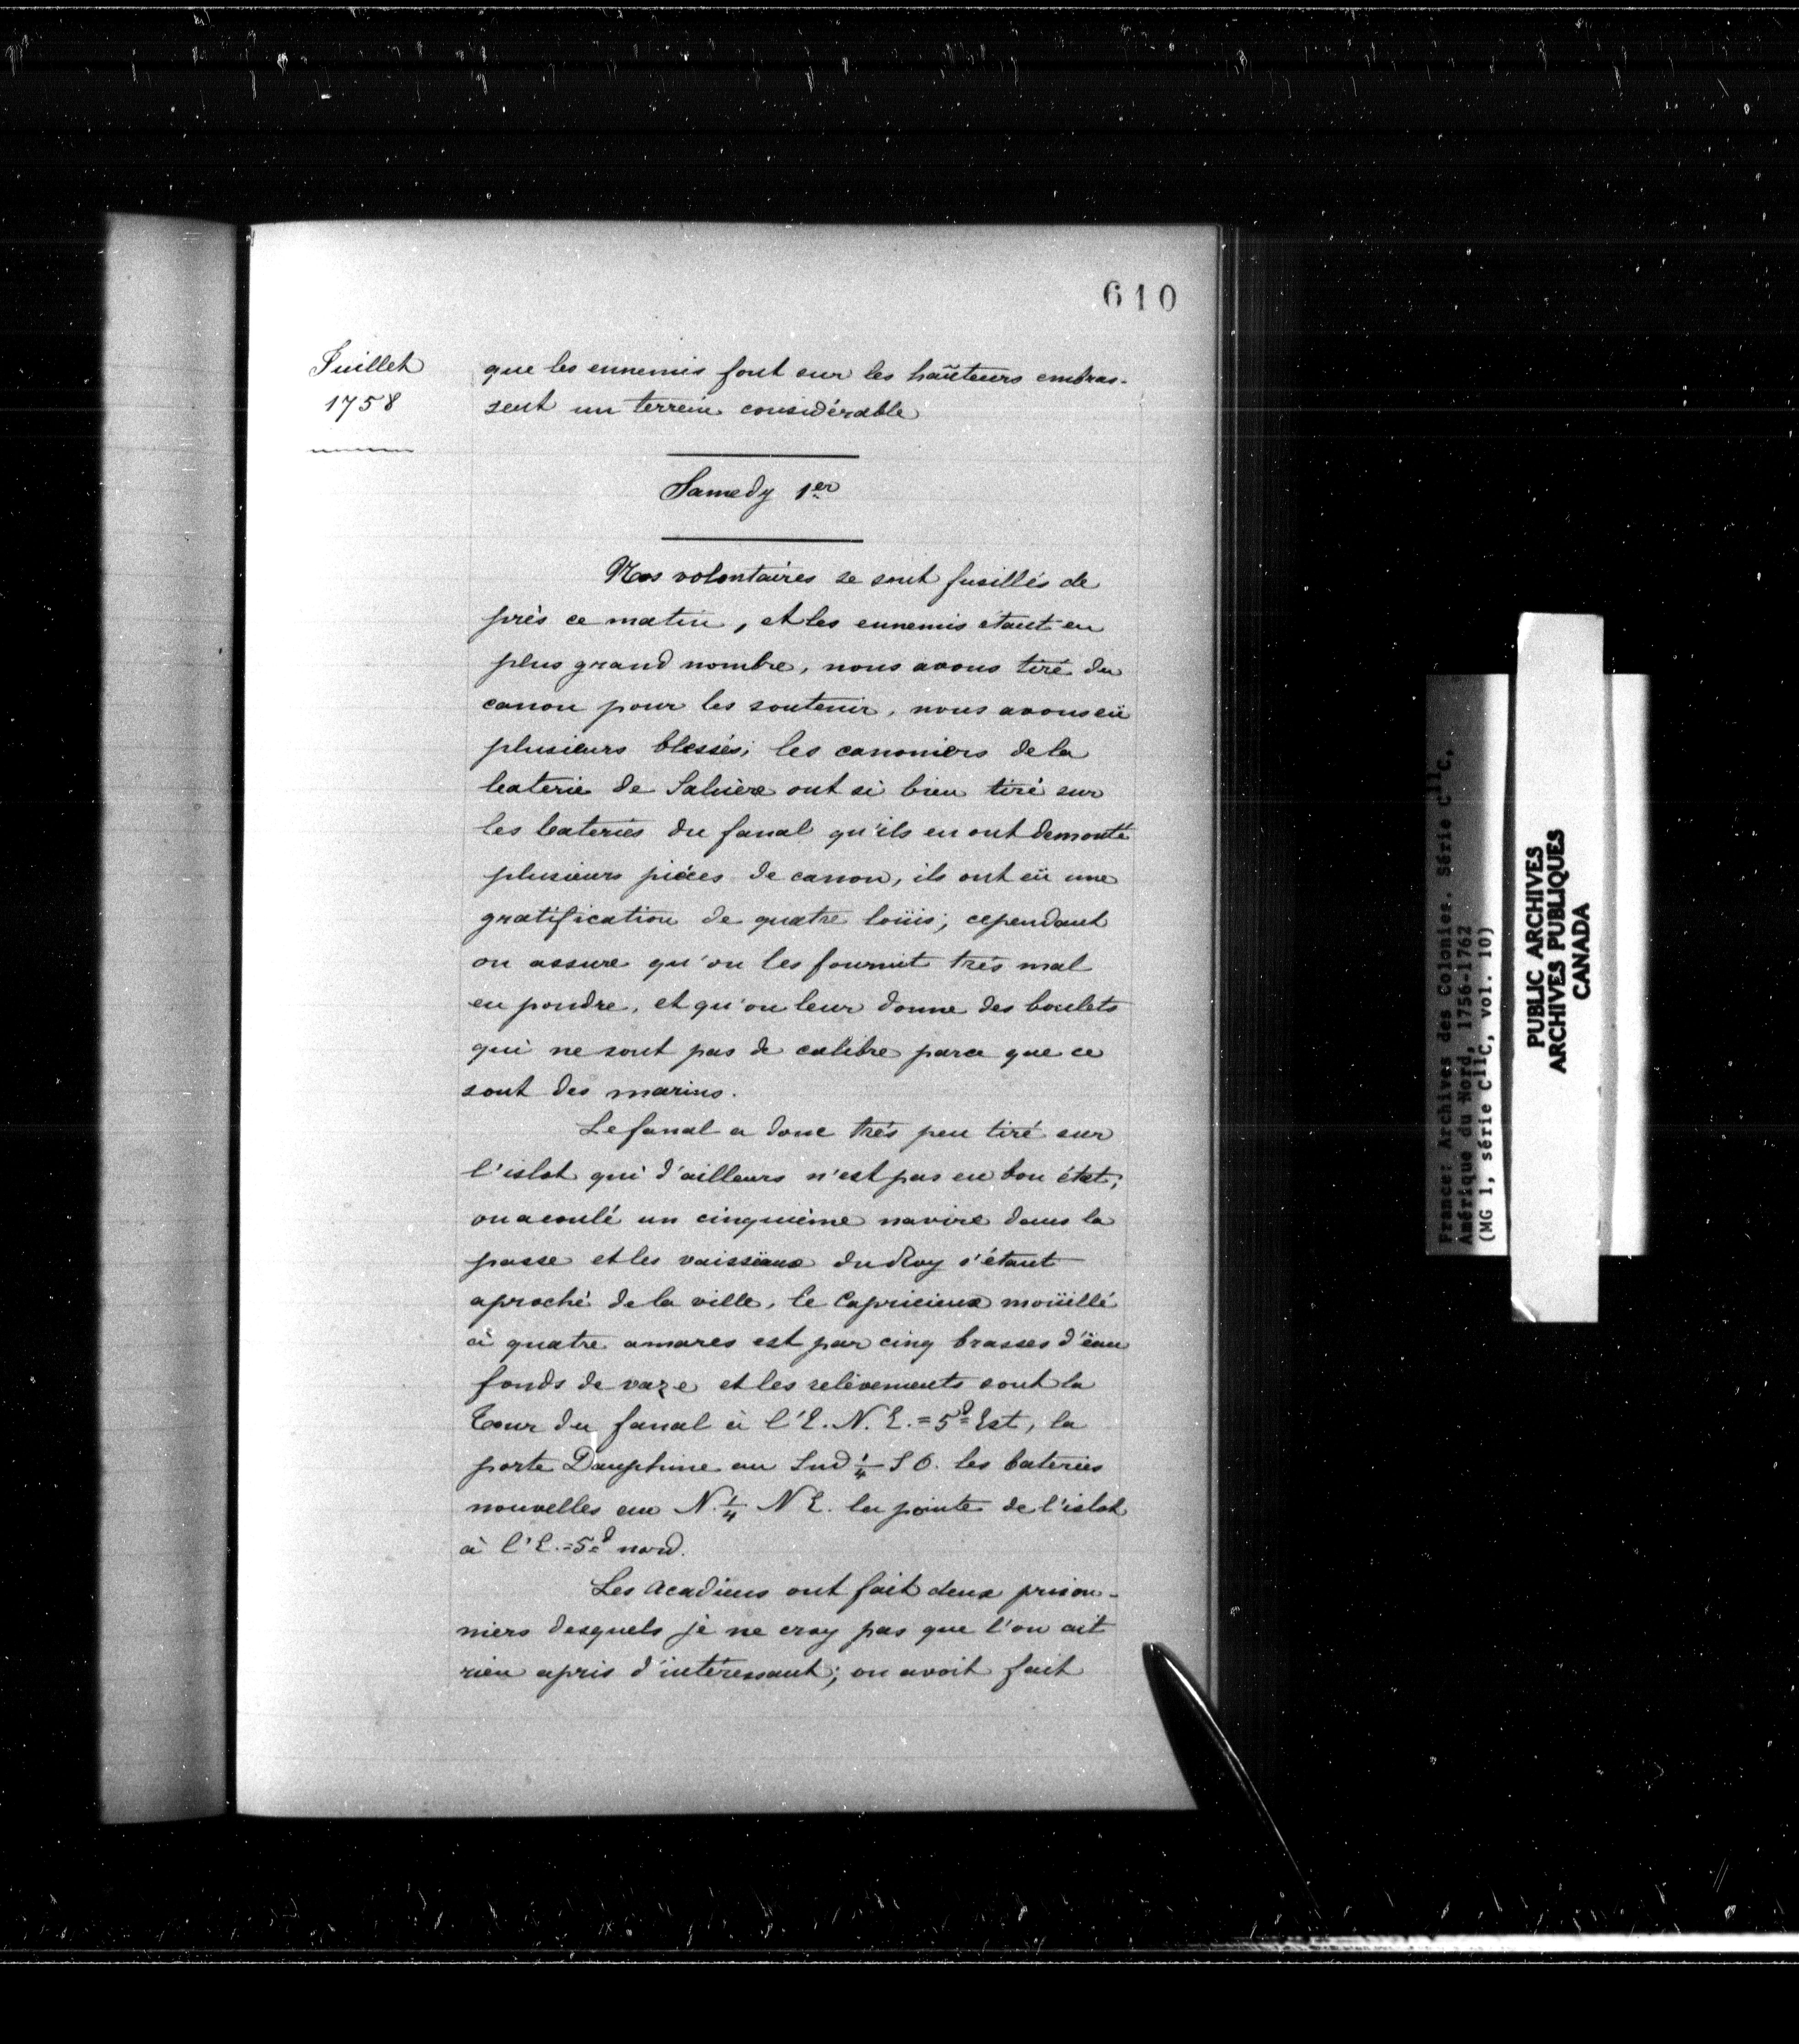 610
Juillet
1758
que les ennemis font sur les haüteurs embras-
sent un terrein considérable
Samedy 1er
Nos volontaires se sont fusillés de
près ce matin, et les ennemis étant en
plus grand nombre, nous avons tiré du
canon pour les soutenir, nous avons eü
plusieurs blessés; les canoniers de la
baterie de Salière ont si bien tiré sur
les bateries du fanal qu'ils en ont demonté
plusieurs pièces de canon, ils ont eü une
gratification de quatre loüis; cependant
on assure qu'on les fournit très mal
en poudre, et qu'on leur donne des boulets
qui ne sont pas de calibre parce que ce
sont des marins.
Le fanal a donc très peu tiré sur
l'islot qui d'ailleurs n'est pas en bon état;
on a coulé un cinquième navire dans la
passe et les vaissëaux du Roy s'étant
aproché de la ville, le Capricieux moüillé
à quatre amares est par cinq brasses d'ëau
fonds de vaze et les relèvements sont la
Tour du fanal à l'E. N. E. = 5d= Est, la
porte Dauphine au Sud 1/4 S O. les bateries
nouvelles au N. 1/4 N E. la pointe de l'islot
à l'E. = 5d= nord.
Les Acadiens ont fait deux prison-
niers desquels je ne croy pas que l'on ait
rien apris d'intéressant; on avoit fait
France: Archives des Colonies. Série C11C,
Amérique du Nord, 1756-1762
(MG 1, série C11C, vol. 10)
PUBLIC ARCHIVES
ARCHIVES PUBLIQUES
CANADA